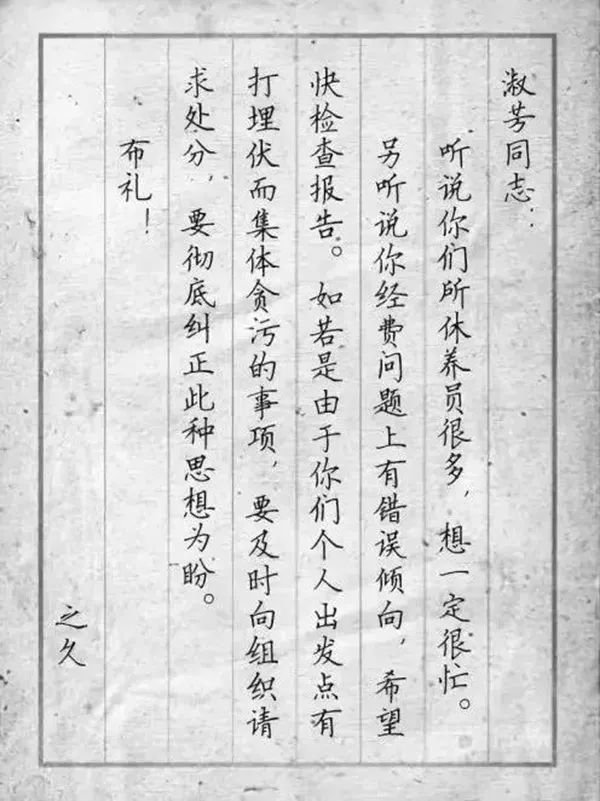 淑芳同志：
听说你们所休养员很多，想一定很忙。
另听说你经费问题上有错误倾向，希望
快检查报告。如若是由于你们个人出发点有
打埋伏而集体贪污的事项，要及时向组织请
求处分，要彻底纠正此种思想为盼。
布礼！
之久